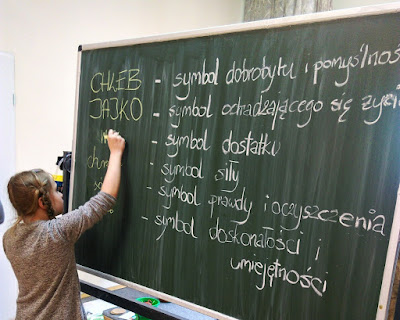 CHLEB - symbol dobrobytu i pomyślnoś
JAJKO - symbol odradzającego się życi
- symbol dostatku
- symbol siły
- symbol prawdy i oczyszczenia
- symbol doskonałości i
umiejętności